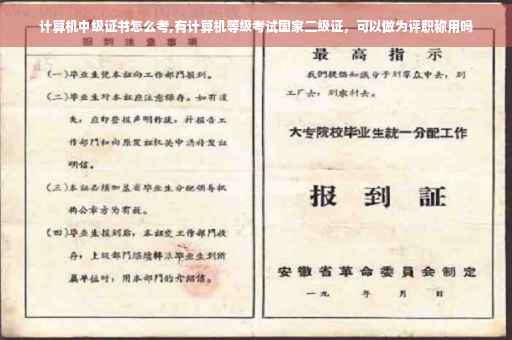 计算机中级证书怎么考,有计算机等级考试国家二级证，可以做为评职称用吗
报到注意事项
(一)毕业生凭本证向工作部门报到。
(二)毕业生对本证应注意保存。如有遗
失，应即登报声明作废，并报告工
作部门和向原发证机关申请补发证
明信。
(三)本证必须加盖省毕业生分配领导机
构公章方为有效。
(四)毕业生报到后，本证交工作部门收
存；上级部门
毕业生到所
属单位时，用本部门的介绍信。
最高指示
我们提倡知识分子到群众中去，到
工厂去，到农村去。
大专院校毕业生统一分配工作
报到証
安徽省革命委員会制定
一九　年　月　日